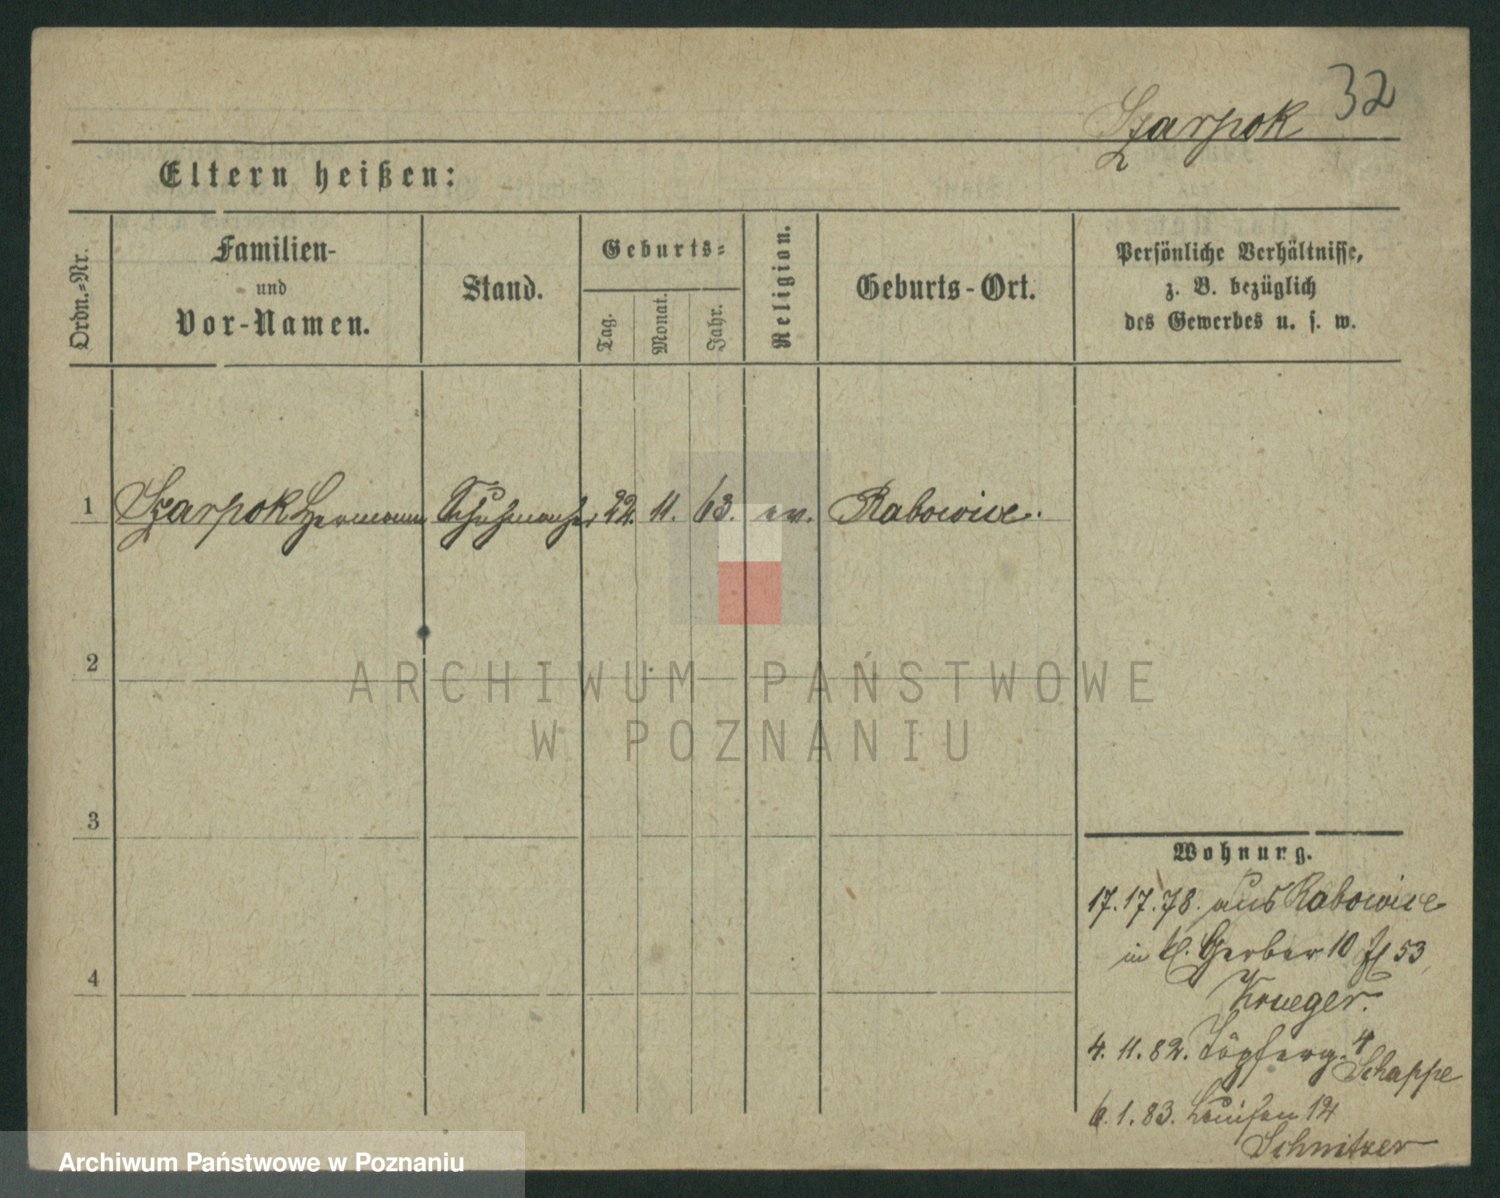 32
Szarpok
Eltern heißen:
Ordn.-Nr.
Familien-
und
Vor-Namen.
Stand.
Geburts-
Tag.
Monat.
Jahr.
Religion.
Geburts-Ort.
Persönliche Verhältnisse,
z. B. bezüglich
des Gewerbes u. s. w.
1 Szarpok Hermann Schuhmacher 22. 11. 63. ev. Rabowice.
2
3
4
Wohnung.
17.17.78. aus Rabowice
in kl. Gerber 10 53
Krueger.
4. 11. 82. Töpferg. 4
Schappe
6. 1. 83. Louisen 12
Schnitzer
ARCHIWUM PAŃSTWOWE
W POZNANIU
Archiwum Państwowe w Poznaniu